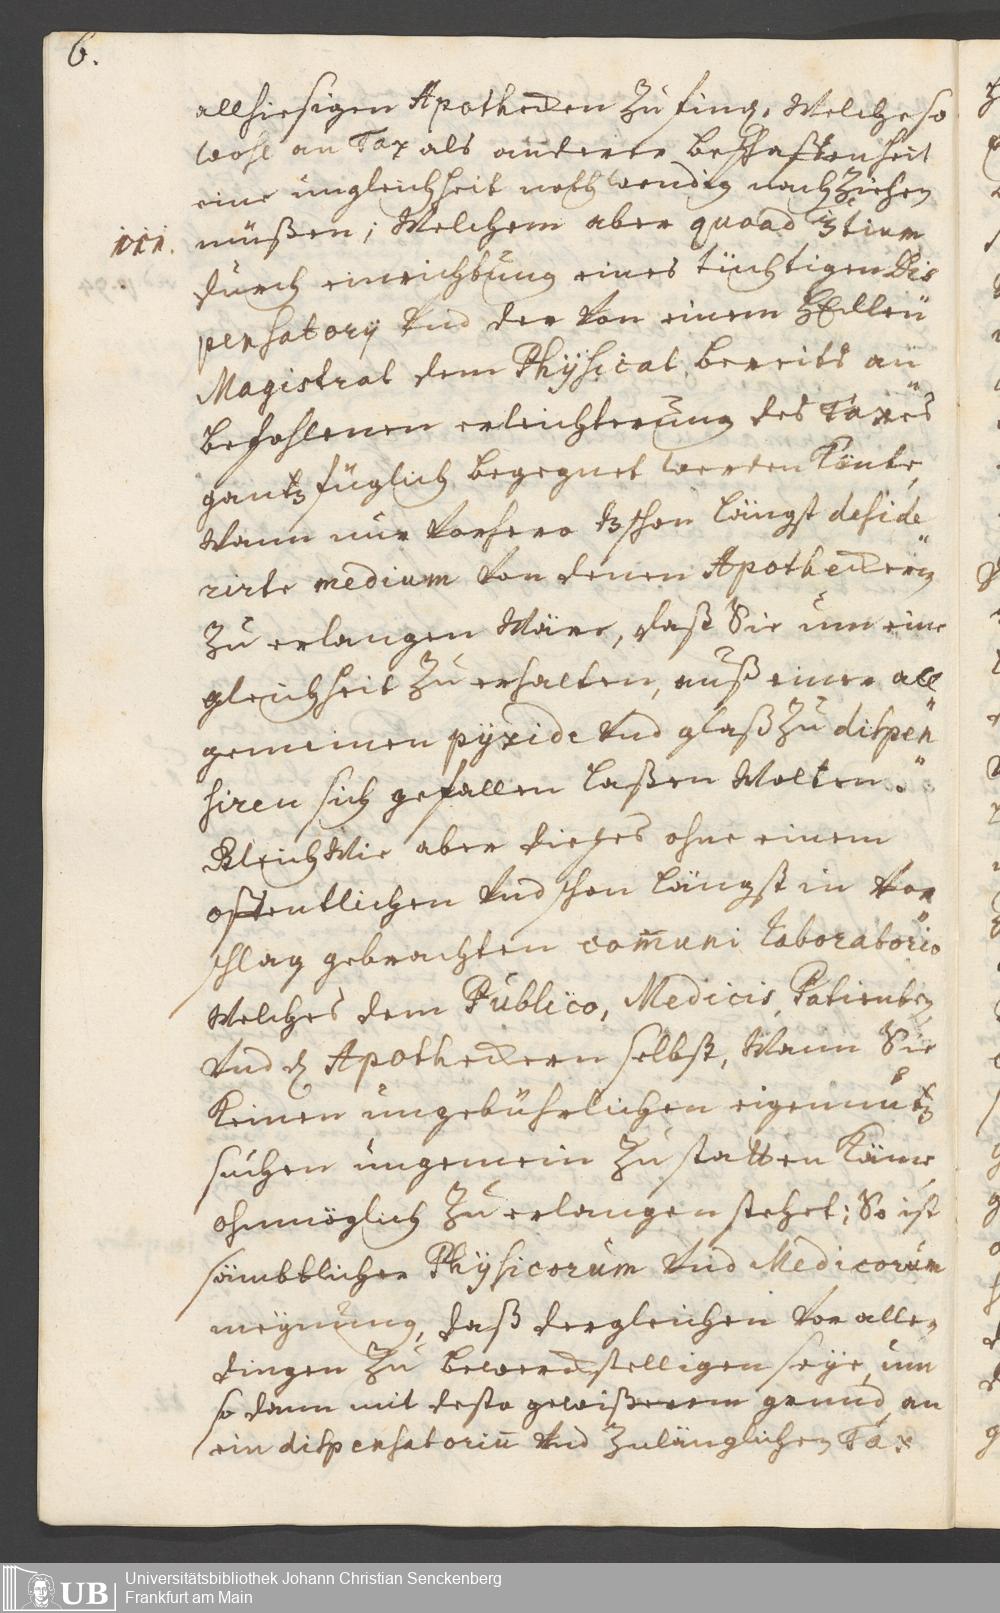 6.
allhiesigen Apothecken Zu find, Welche so
wohl an Tax als anderer beschaffenheit
eine ungleichheit nothwendig nach Ziehen
müßen; Welchem aber quoad 3tium
III.
durch einrichtung eines tüchtigen Dis
pensatorÿ Vnd der Von einem HEdlen
Magistrat dem Physicat bereits an
befohlenen erleichterung des Taxes
gantz füglich begegnet werden könte,
Wann nur Vorhero dz schon längst deside
rirte medium Von denen Apotheckern
Zu erlangen Wäre, daß Sie um eine
gleichheit Zu erhalten, auß einer all
gemeinen pÿxide Vnd glaß Zu dispen
siren sich gefallen laßen Wolten.
Gleich Wie aber dieses ohne einem
offentlichen Vnd schon längst in Vor
schlag gebrachten com̄uni laboratorio
Welches dem Publico, Medicis, Patienten
Vnd d Apotheckern selbst, Wann Sie
keinen ungebührlichen eigennutz
suchen ungemein Zu statten käme,
ohnmöglich Zu erlangen stehet; So ist
sämbtlicher Phÿsicorum Vnd Medicorum
meÿnung, daß dergleichen Vor allen
dingen Zu bewerckstelligen seÿe, um
so dann mit desto gewißerem grund, an
ein dispensatoriu̅ Vnd Zulänglichen Tax
Universitätsbibliothek Johann Christian Senckenberg
UB Frankfurt am Main